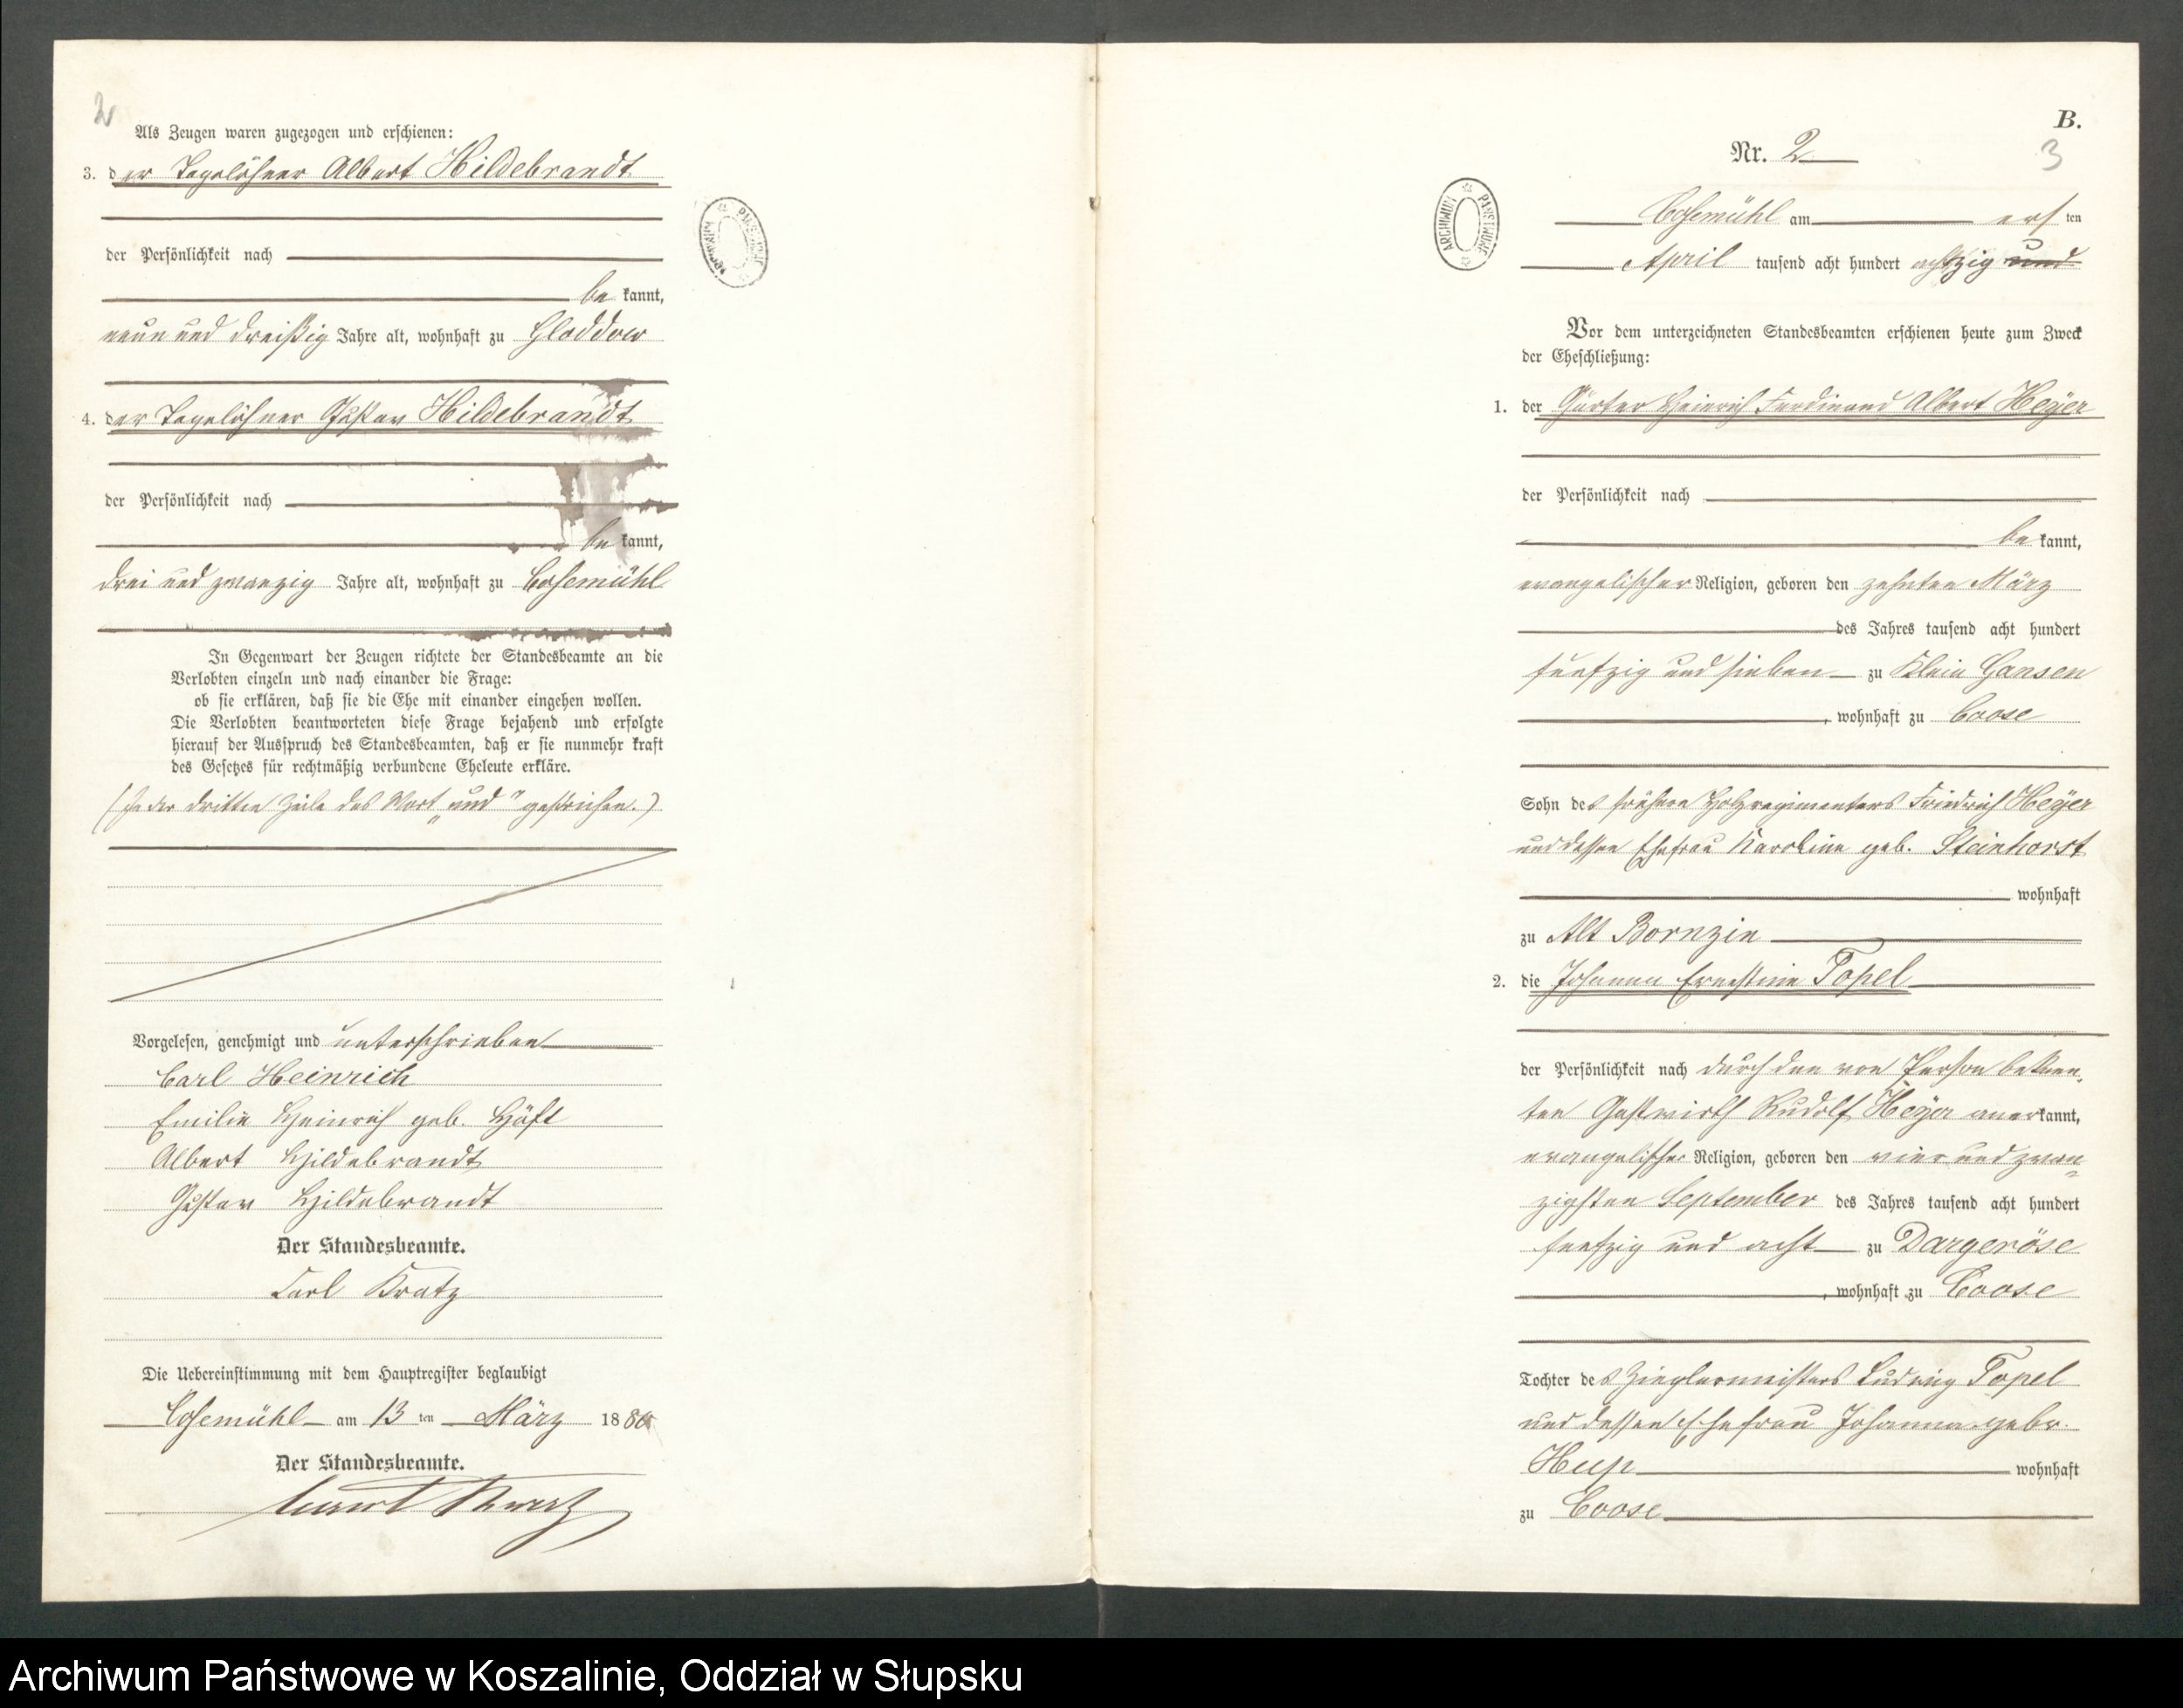 2
Als Zeugen waren zugezogen und erschienen:
3. der Tagelöhner Albert Hildebrandt
der Persönlichkeit nach
be kannt,
neun und dreißig Jahre alt, wohnhaft zu Gloddow
4. der Tagelöhner Gustav Hildebrandt
der Persönlichkeit nach
be kannt,
drei und zwanzig Jahre alt, wohnhaft zu Cosemühl
In Gegenwart der Zeugen richtete der Standesbeamte an die
Verlobten einzeln und nach einander die Frage:
ob sie erklären, daß sie die Ehe mit einander eingehen wollen.
Die Verlobten beantworteten diese Frage bejahend und erfolgte
hierauf der Ausspruch des Standesbeamten, daß er sie nunmehr kraft
des Gesetzes für rechtmäßig verbundene Eheleute erkläre.
(In der dritten Zeile das Wort „und" gestrichen.)
Vorgelesen, genehmigt und unterschrieben
Carl Heinrich
Emilie Heinrich geb. Höft
Albert Hildebrandt
Gustav Hildebrandt
Der Standesbeamte.
Carl Kratz
Die Uebereinstimmung mit dem Hauptregister beglaubigt
Cosemühl am 13 ten März 1880
Der Standesbeamte.
ARCHIWUM PAŃSTWOWE
B.
3
Nr. 2
ARCHIWUM PAŃSTWOWE
Cosemühl am ersten
April tausend acht hundert achtzig und
Vor dem unterzeichneten Standesbeamten erschienen heute zum Zweck
der Eheschließung:
1. der Heinrich Ferdinand Albert Heÿer
der Persönlichkeit nach
be kannt,
evangelischer Religion, geboren den zehnten März
des Jahres tausend acht hundert
funfzig und sieben zu Klein Gansen
, wohnhaft zu Coose
Sohn des Friedrich Heÿer
und dessen Ehefrau Karoline geb. Steinhorst
wohnhaft
zu Alt Bornzin
2. die Johanna Ernestine Topel
der Persönlichkeit nach durch den von Person bekann-
ten Gastwirth Rudolf Heÿer anerkannt,
evangelischer Religion, geboren den vier und zwan-
zigsten September des Jahres tausend acht hundert
funfzig und acht zu Dargeröse
, wohnhaft zu Coose
Tochter des Zieglermeisters Ludwig Topel
und dessen Ehefrau Johanna gebr.
wohnhaft
zu Coose
Archiwum Państwowe w Koszalinie, Oddział w Słupsku